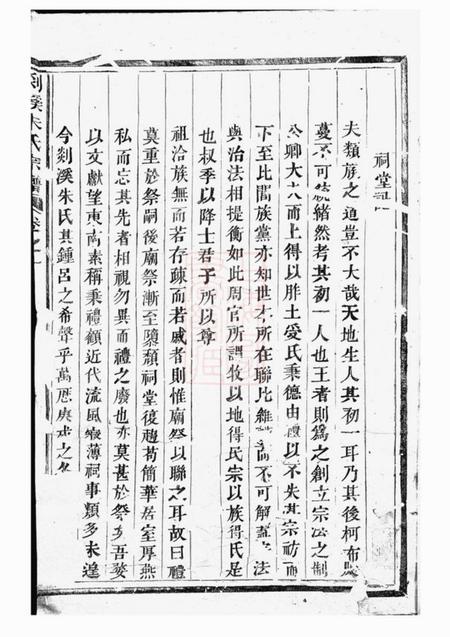 祠堂記
夫類族之道豈不大哉天地生人其初一耳乃其後柯布
蔓不可統緒然考其初一人也王者則為之創立宗法之制
公卿大夫而上得以胙土受氏秉德由禮以不失其宗祊而
下至比閭族黨亦知世才所在聯比雖 不可解蓋 法
與治法相提衡如此周官所謂牧以地得民宗以族得民是
也叔季以降士君子所以尊
祖洽族無而若存疎而若戚者則惟廟祭以聯之耳故曰禮
莫重於祭嗣後廟祭漸至隳頹祠堂復趨苟簡華居室厚燕
私而忘其先者相視勿異而禮之廢也亦莫甚於祭矣吾婺
以文獻望東南素稱秉禮顧近代流風寖薄祠事類多未遑
今剡溪朱氏其鍾呂之希聲乎萬曆庚戌之冬
剡溪朱氏宗譜 卷之一